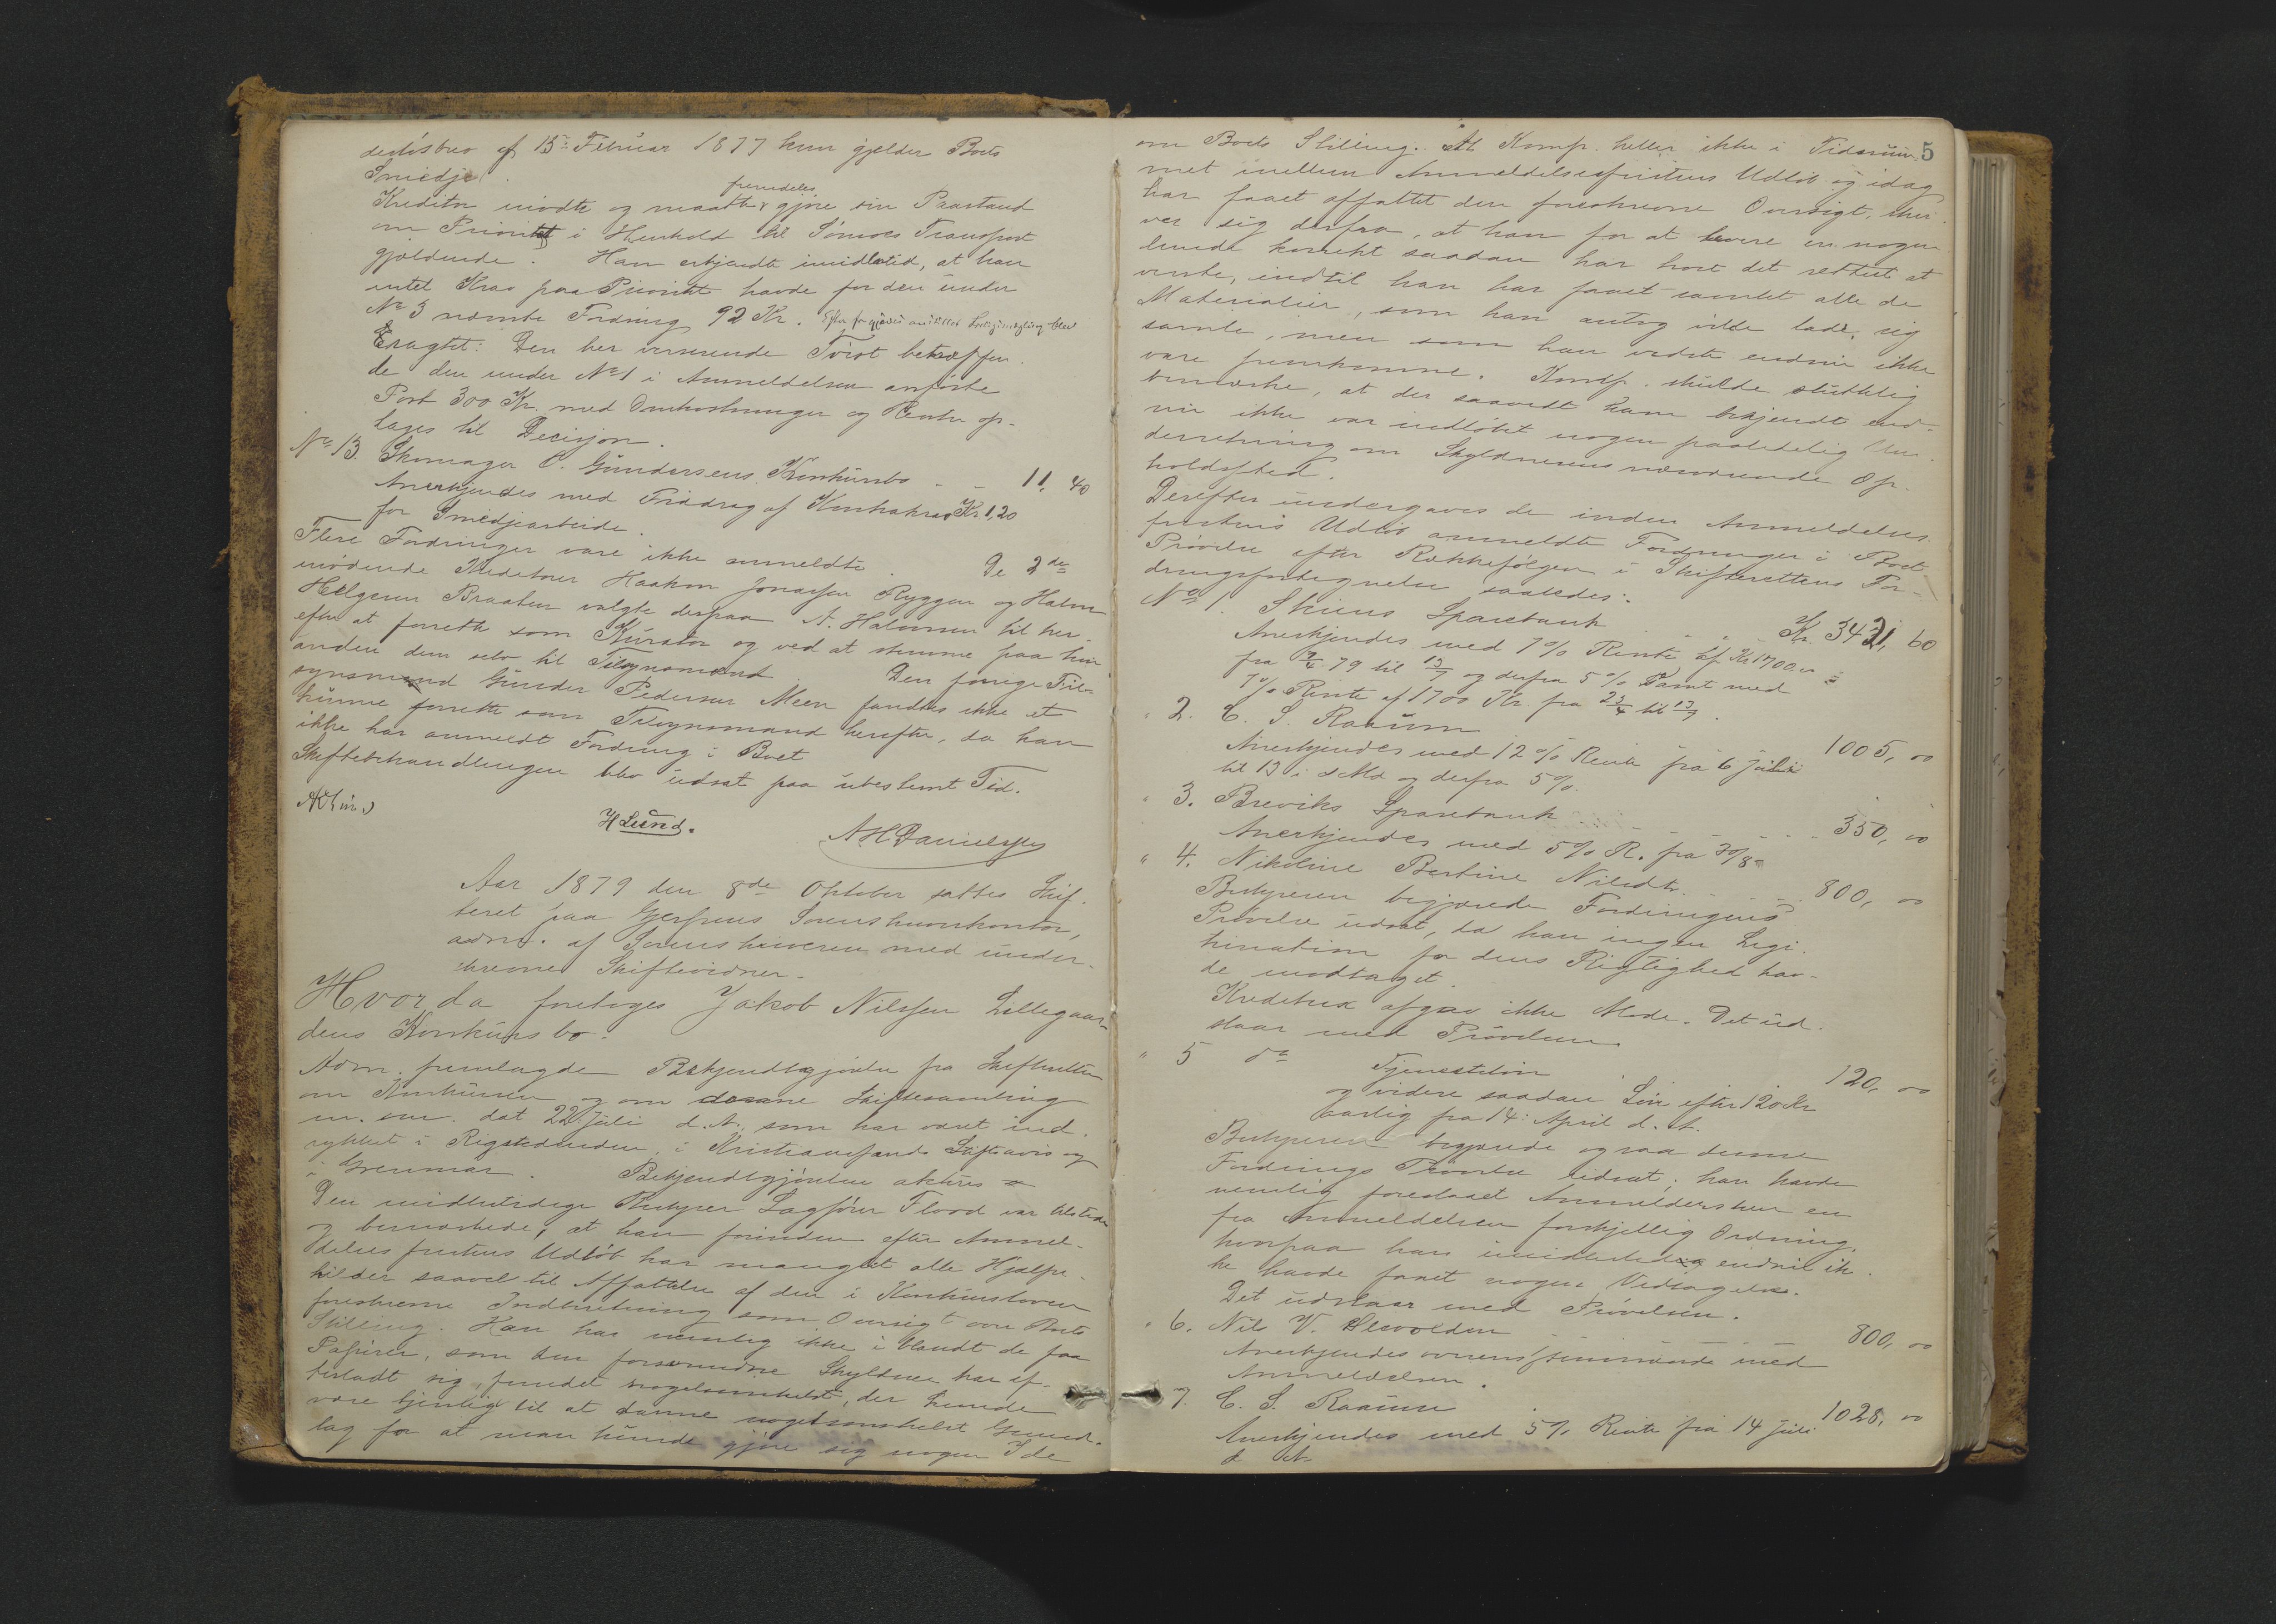 destsbrev af 13de Februar 1877 kun gjelder Boets
Smedje.
Kreditor mødte og maatte fremdeles gjøre sin Paastand
om Prioritet i Henhold til Transport
gjældende. Han erkjendte imidlertid, at han
intet Krav paa Prioritet havde for den under
No 3 nævnte Fordring 92 Kr. Efter forgjæves anstillet Forligsmægling blev
Eragtet: Den her verserende Tvist betræffen-
de den under No 1 i Anmeldelsen anførte
Post 300 Kr. med Omkostninger og Renter op-
tages til Decisjon.
No 13. Skomager O. Gundersens Konkursbo - - 11, 40
Anerkjendes med Fradrag af Kontrakrav Kr 1,20
for Smedjearbeide.
Flere Fordringer vare ikke anmeldte. De 2de
mødende Kreditorer Haakon Jonassen Ryggen og Halvor
Helgesen Braaten valgte derpaa A. Halvorsen til her-
efter at forrette som Kurator og ved at stemme paa hin-
anden dem selv til Tilsynsmænd. Den forrige Til-
synsmand Gunder Pedersen Meen fandtes ikke at
kunne forrette som Tilsynsmand herefter, da han
ikke har anmeldt Fordring i Boet
Skiftebehandlingen blev udsat paa ubestemt Tid.
H Lund. A H Danielsen
Aar 1879 den 8de Oktober sattes Skif-
teret paa Gjerpens Sorenskriverkontor,
adm. af Sorenskriveren med under-
skrevne Skiftevidner.
Hvorda foretoges Jakob Nilssen Lillegaar-
dens Konkursbo.
Adm. fremlagde Bekjendtgjørelse fra Skifteretten
om Konkursen og om denne Skiftesamling
m. m. dat 22 Juli d. A., som har været ind-
rykket i Rigstidenden, i Kristianssands Stiftsavis og
i Grenmar. Bekjendtgjørelsen akteres
Den midlertidige Bestyrer Sagfører Flood var tilstede
og bemærkede, at han forinden efter Anmel-
delsesfristens Udløb har manglet alle Hjælpe-
kilder saavel til Affattelse af den i Konkursloven
foreskrevne Indberetning som Oversigt over Boets
Stilling. Han har nemlig ikke i blandt de faa
Papirer, som den forsvundne Skyldner har ef-
terladt sig, fundet nogetsomhelst, der kunde
være tjenlig til at danne nogetsomhelst Grund-
lag for at man kunde gjøre sig nogen Ide
5
om Boets Stilling. At Komp. heller ikke i Tidsrum-
met mellem Anmeldelsesfristens Udløb og idag
har faaet affattet den foreskrevne Oversigt, skri-
ver sig derfra, at han for at levere en nogen-
lunde korrekt saadan har troet det rettest at
vente, indtil han har faaet samlet alle de
Materialier, som han antog vilde lade sig
samle, men som han vidste endnu ikke
vare fremkomne. Komp. skulde sluttelig
bemærke, at der saavidt ham bekjendt end-
nu ikke var indløbet nogen paalidelig Un-
derretning om Skyldnerens nærværende Op-
holdssted.
Derefter undergaves de inden Anmeldelses-
fristens Udløb anmeldte Fordringer i Boet
Prøvelse efter Rækkefølgen i Skifterettens For-
dringsfortegnelse saaledes:
No 1. Skiens Sparebank - - Kr. 3421, 60
Anerkjendes med 7 % Rente af Kr 1700.00
fra 79 til og derfra 5 % samt med
7 % Rente af 1700 Kr. fra 23/4 til 13/7.
" 2. C. S. Raaum 1005, 00
Anerkjendes med 12 % Rente fra 6 Juli
til 13 i s. Md og derfra 5 %.
" 3. Breviks Sparebank - - - - 350, 00
Anerkjendes med 5 % R. fra
" 4. Nikoline Bertine Nilsdtr. - - - 800, 00
Bestyreren begjærede Fordringens
Prøvelse udsat, da han ingen Legi-
timation for dens Rigtighed hav-
de modtaget.
Kreditrix afgav ikke Møde. Det ud-
staar med Prøvelsen.
" 5 do Tjenesteløn 120, 00
og videre saadan Løn efter 120 Kr
aarlig fra 14. April d. A.
Bestyreren begjærede ogsaa denne
Fordrings Prøvelse udsat; han havde
nemlig foreslaaet Anmeldersken en
fra Anmeldelsen forskjellig Ordning,
hvorpaa han imidlertid endnu ik-
ke havde faaet nogen Vedtagelse.
Det udstaar med Prøvelsen.
" 6. Nils V. - - - 800, 00
Anerkjendes overensstemmende med
Anmeldelsen.
7. C. S. Raaum 1028, 00
Anerkjendes med 5 % Rente fra 14 Juli
d. A.